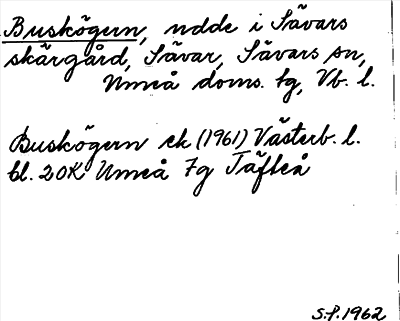 Buskögern, udde i Sävars
skärgård, Sävar, Sävars sn,
Umeå doms. tg, Vb. l.
Buskögern ek (1961) Västerb. l.
bl. 20K Umeå 7g Täfteå
S.S. 1962